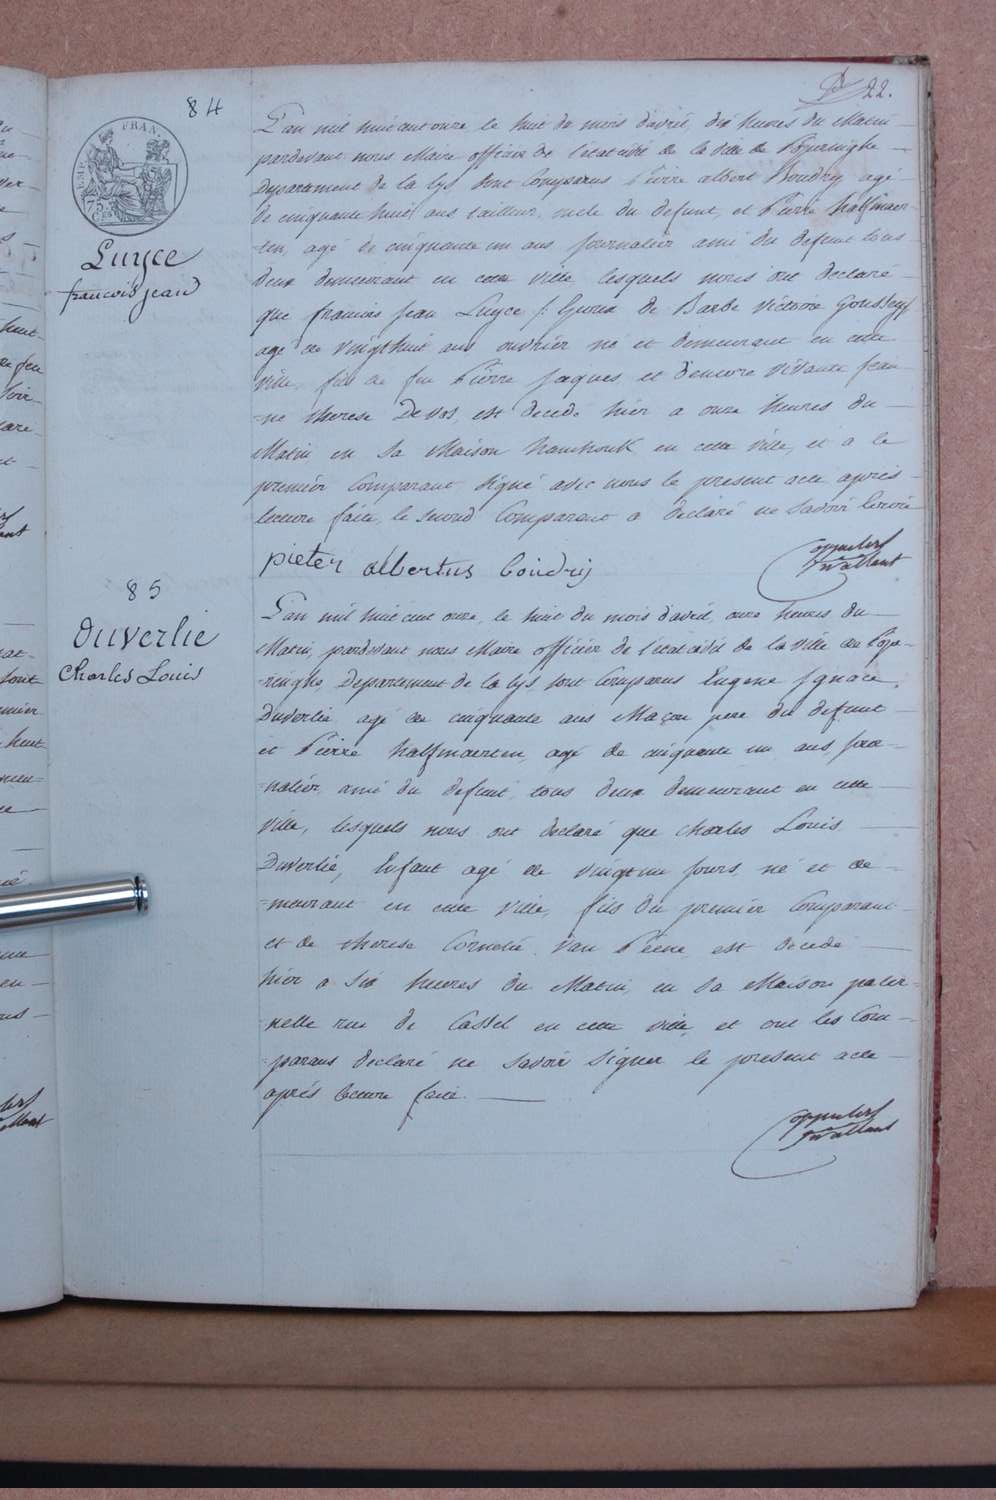 22.
84
EMP. FRAN.
75 Ces
Luyce
francois jean
L'an mil huit cent onze, le huit du mois d'avril, dix heures du Matin
pardevant nous Maire officier de l'état civil de la ville de Poperinghe
Departement de la Lys sont Comparus Pierre albert Boudry agé
de cinquante huit ans tailleur, oncle du defunt, et Pierre halfmaer-
-ten, agé de cinquante un ans journalier ami du defunt tous
deux demeurant en cette ville lesquels nous ont declaré
que francois jean Luyce Epoux de Barbe Victoire Goussey
agé de vingt huit ans ouvrier né et demeurant en cette
ville, fils de feu Pierre jacques et d'encore vivante jean-
-ne therese Devos, est decedé hier a onze heures du
Matin en sa Maison en cette ville, et a le
premier Comparant signé avec nous le present acte après
lecture faite, le second Comparant a declaré ne savoir Ecrire
pieter albertus boudrij
85
Duverlie
Charles Louis
L'an mil huit cent onze, le huit du mois d'avril, onze heures du
Matin, pardevant nous Maire officier de l'état civil de la ville de Pope-
-ringhe, Departement de la Lys, sont Comparus Eugene Ignace
Duverlie agé de cinquante ans Maçon pere du defunt
et Pierre halfmaerten, agé de cinquante un ans, jour-
-nalier, ami du defunt, tous deux demeurant en cette
ville, lesquels nous ont declaré que Charles Louis
Duverlie, Enfant agé de vingt un jours, né et de-
-meurant en cette ville, fils du premier Comparant
et de therese Cornelie Van Peene est decedé
hier a six heures du Matin, en sa Maison pater-
-nelle rue de Cassel en cette ville, et ont les Com-
-parans declaré ne savoir signer le present acte
après lecture faite.